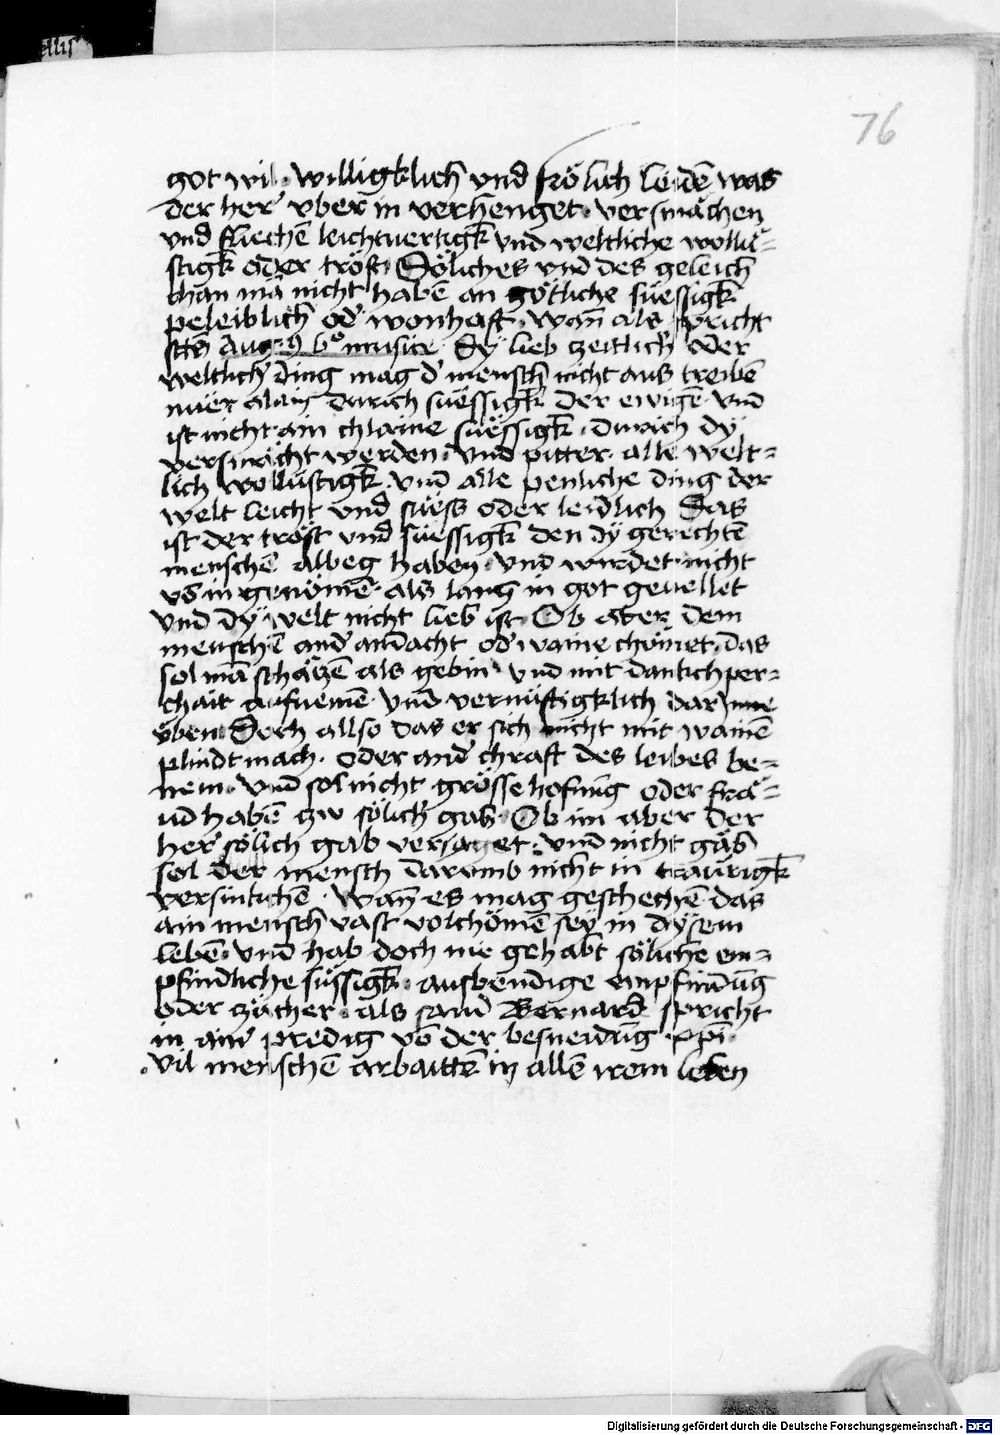 76
got wil · willigklich und frölich leiden was
der her uber in verhenget · versmächen
und fliechē leichtvertigk̄ und weltliche wollü=
stigk̄ oder tröst · Söliches und des geleich
chan mā nicht habē an götliche süessigk̄
peleiblich od' wonhaft · wan̄ als spricht
Aug 9 6º musice Dy lieb zeitlich oder
weltlich ding mag d' mensch nicht aus treibē
nuer alain durich süessigk̄ der ewigē · und
ist nicht ain chlaine süessigk̄ · durich dy
versmächt werden · und pitter alle welt=
lich wollustigk̄ · und alle penliche ding der
welt leicht und süess oder leidlich Das
ist der tröst und süessigk̄ den dy gerechtē
menschē albeg haben · und wirdet nicht
vō in genömē · als lang in got gevellet
und dy welt nicht lieb ist · Ob aber dem
menschē and' andacht od' waine chömet · das
sol mā schätzē als gebin · und mit danckhper=
chait aufnemē und vernüftigklich dar inne
üben Doch allso das er sich nicht mit wainē
plindt mach · oder and' chraft des leibes be=
nem · und sol nicht grösse hofnūg oder freä=
ud habē zw sölich' gab · Ob im aber der
her sölich gab versaget · und nicht gäb
sol der mensch darumb nicht in traurigk̄
versinkchē · Wan̄ es mag geschechē das
ain mensch vast volchömē sey in dysem
lebē · und hab doch nie gehabt söliche em=
pfindliche süssigk̄ · ausbendige empfindūg
oder zächer · als sand Bernard spricht
in ain' predig vō der besneidūg xp̄i ·
Vil menschē arbaittē in allē irem leben
Digitalisierung gefördert durch die Deutsche Forschungsgemeinschaft - DFG